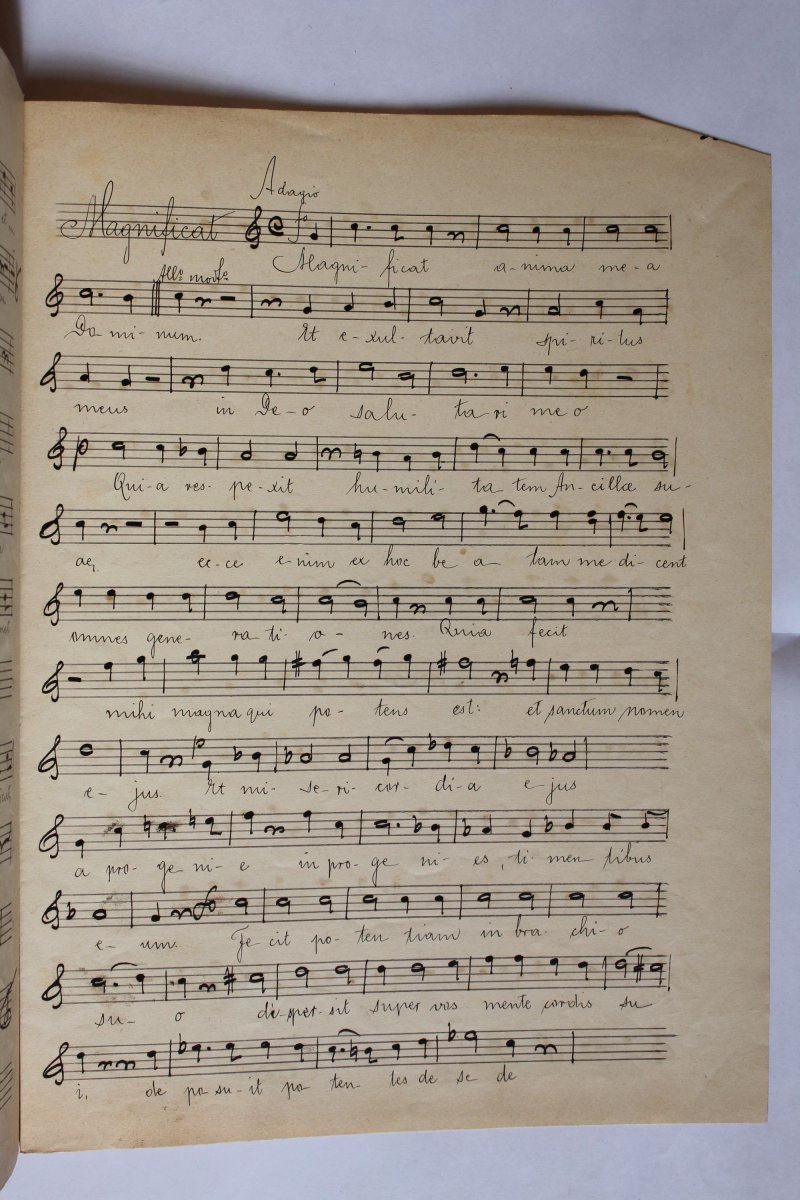 Adagio
Magnificat
Magni- ficat a-nima me-a
All.º mod.to
Do mi- num. Et e-xul- tavit spi- ri-tus
meus in De-o salu- ta-ri me o
Qui-a res- pe-xit hu-mili- ta tem An-cillæ su-
ae, ec-ce e-nim ex hoc be a- tam me di-cent
omnes gene- ra ti- o- nes. Quia fecit
mihi magna qui po- tens est: et sanctum nomen
e- jus. Et mi- se-ri- cor- di-a e jus
a pro- ge ni- e in pro-ge ni- es, ti- men tibus
e- um. Fe cit po- ten tiam in bra- chi-o
su- o di-sper-sit super vos mente cordis su
i, de po su-it po ten- tes de se de